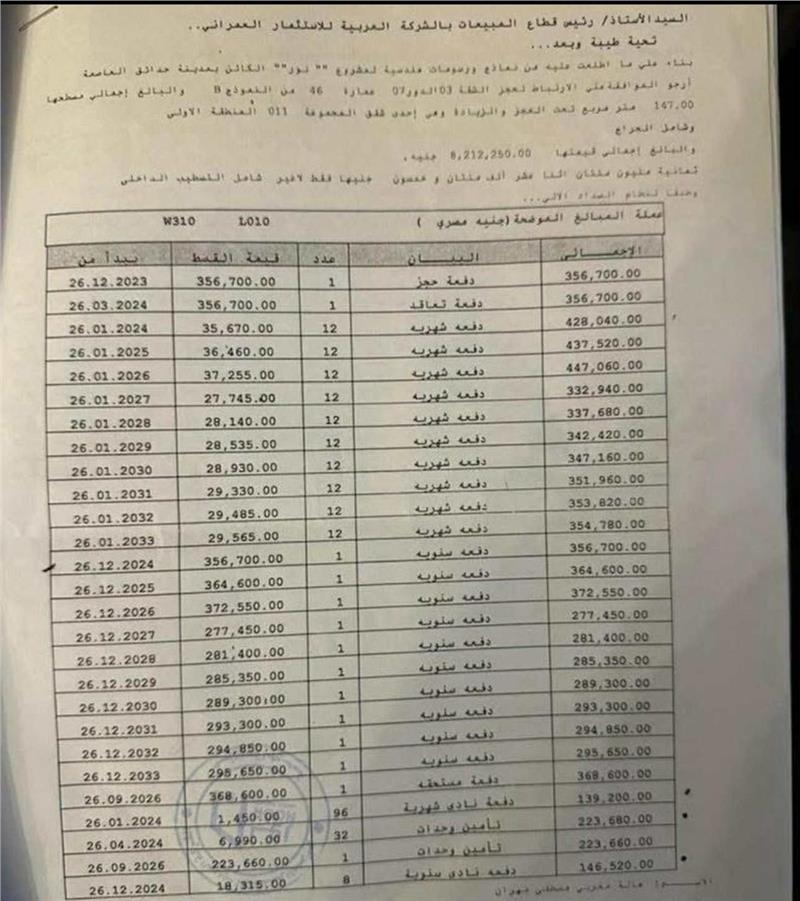 السيد الأستاذ/ رئيس قطاع المبيعات بالشركة العربية للاستثمار العمراني..
تحية طيبة وبعد...
بناء علي ما اطلعت عليه من نماذج ورسومات هندسية لمشروع "" نور"" الكائن بمدينة حدائق العاصمة
أرجو الموافقة علي الارتباط لحجز الشقة 03 الدور 07 عمارة 46 من النموذج B والبالغ إجمالي مسطحها
147.00 متر مربع تحت العجز والزيادة وهي إحدى شقق المجموعة 011 المنطقة الاولى
وشامل الجراج
والبالغ إجمالي قيمتها 8,212,250.00 جنيه.
ثمانية مليون مئتان اثنا عشر ألف مئتان و خمسون جنيها فقط لاغير شامل التشطيب الداخلى
وطبقا لنظام السداد الآتي...
عملة المبالغ الموضحة (جنيه مصري ) L010 W310
الإجمالى البيان عدد قيمة القسط يبدأ من
356,700.00 دفعة حجز 1 356,700.00 26.12.2023
356,700.00 دفعة تعاقد 1 356,700.00 26.03.2024
428,040.00 دفعه شهريه 12 35,670.00 26.01.2024
437,520.00 دفعه شهريه 12 36,460.00 26.01.2025
447,060.00 دفعه شهريه 12 37,255.00 26.01.2026
332,940.00 دفعه شهريه 12 27,745.00 26.01.2027
337,680.00 دفعه شهريه 12 28,140.00 26.01.2028
342,420.00 دفعه شهريه 12 28,535.00 26.01.2029
347,160.00 دفعه شهريه 12 28,930.00 26.01.2030
351,960.00 دفعه شهريه 12 29,330.00 26.01.2031
353,820.00 دفعه شهريه 12 29,485.00 26.01.2032
354,780.00 دفعه شهريه 12 29,565.00 26.01.2033
356,700.00 دفعه سنويه 1 356,700.00 26.12.2024
364,600.00 دفعه سنويه 1 364,600.00 26.12.2025
372,550.00 دفعه سنويه 1 372,550.00 26.12.2026
277,450.00 دفعه سنويه 1 277,450.00 26.12.2027
281,400.00 دفعه سنويه 1 281,400.00 26.12.2028
285,350.00 دفعه سنويه 1 285,350.00 26.12.2029
289,300.00 دفعه سنويه 1 289,300.00 26.12.2030
293,300.00 دفعه سنويه 1 293,300.00 26.12.2031
294,850.00 دفعه سنويه 1 294,850.00 26.12.2032
295,650.00 دفعه سنويه 1 295,650.00 26.12.2033
368,600.00 دفعة مستحقه 1 368,600.00 26.09.2026
139,200.00 دفعة نادى شهرية 96 1,450.00 26.01.2024
223,680.00 تأمين وحدات 32 6,990.00 26.04.2024
223,660.00 تأمين وحدات 1 223,660.00 26.09.2026
146,520.00 دفعه نادى سنوية 8 18,315.00 26.12.2024